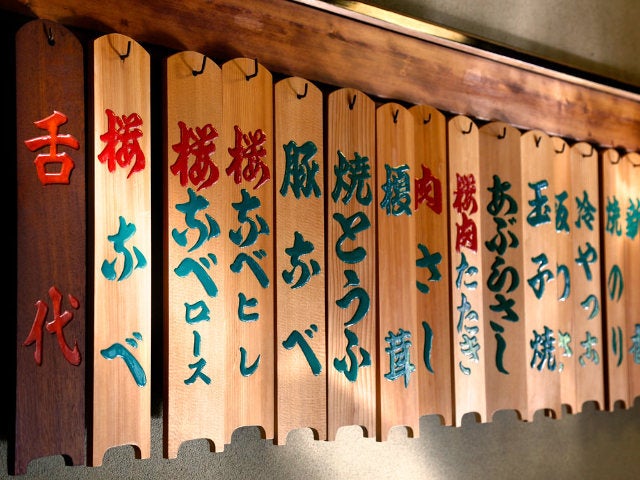 舌代
桜なべ
桜なべロース
桜なべヒレ
豚なべ
焼とうふ
榎茸
肉さし
桜肉たたき
あぶらさし
玉子焼
冷やっこ
焼のり